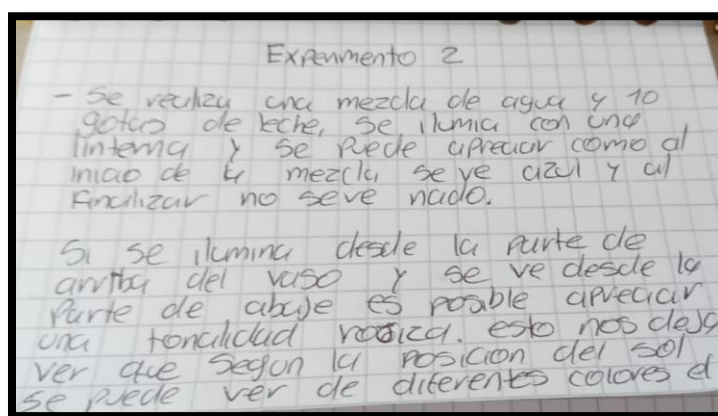 Experimento 2
- Se realiza una mezcla de agua y 10
gotas de leche, se ilumia con una
linterna y se puede apreciar como al
inicio de la mezcla se ve azul y al
Finalizar no seve nado.
Si se ilumina desde la parte de
arriba del vaso y se ve desde la
Parte de abaje es posible apreciar
una tonalidad rogiza. esto nos deja
ver que segun la posicion del sol
se puede ver de diferentes colores el